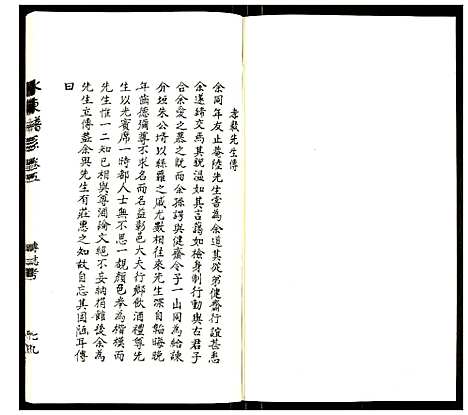 孝毅先生傳
余同年友止菴陸先生嘗為余道其從弟健齋行誼甚悉
余遂締交焉其貌溫如其言藹如檢身制行動與古君子
合余愛之慕之既而余孫諤與健齋令子一山同為給諫
介垣朱公壻以絲蘿之戚尤數相往來先生深自韜晦晚
年齒德彌尊不求名而名益彰邑大夫行鄉飲酒禮尊先
生以光賓席一時都人士無不思一覿顏色奉為楷模而
先生惟一二知已相與尊酒論文絕不妄納捐館後余為
先生立傳蓋余與先生有莊惠之知故自忘其固陋耳傳
曰